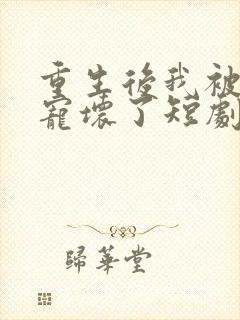 重生後我被
寵壞了短劇
歸華堂